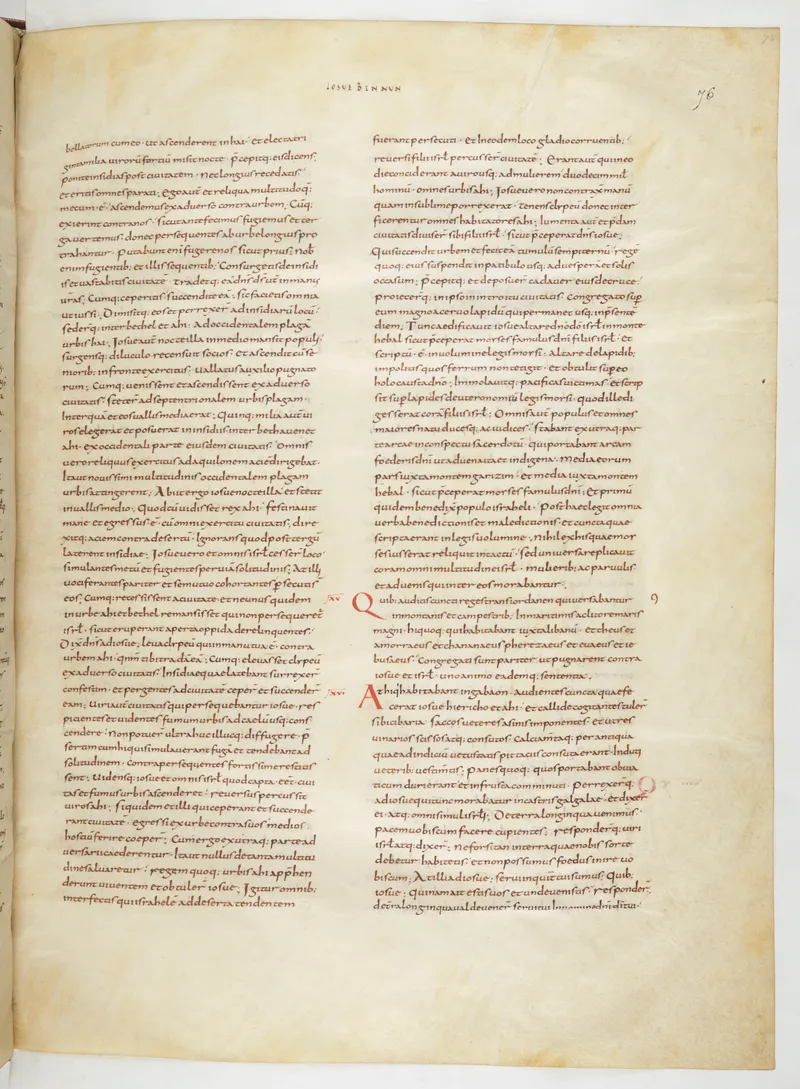 IOSUE BENNUN
76
bellatorum cum eo · ut ascenderent in hai · et electa tri
ginta milia uirorū fortiū misit nocte · p̄cepitq; eis dicens;
ponite insidias post ciuitatem · nec longius recedatis ·
et eritis omnes parati; ego aut̄ et reliqua multitudo q̄
mecum · ē · ascendemus ex aduerso contra urbem; Cūq;
exierint contra nos · sicut ante fecimus fugiemus et ter
ga uertemus · donec persequentes ab urbe longius pro
trahantur · Putabunt eni fugere nos sicut prius; nob
enim fugientib; et illis sequentib; Consurgetis de insidi
is et uastabitis ciuitatē · tradetq; eā dn̄s d̄s ur̄ in manus
ur̄as; Cumq; ceperitis · succendite eā; sic facietis omnia
ut iussi; Dimisitq; eos et perrexer̄ ad insidiarū locū ·
sederq; inter bethel et ahi · Ad occidentalem plagā
urbis hai; Iosue aut̄ nocte illa in medio mansit populi;
surgensq; diluculo recensuit socios · et ascendit cū se
niorib; in fronte exercitus · Uallatus auxilio pugnato
rum; Cumq; uenissent et ascendissent ex aduerso
ciuitatis · steter̄ ad septentrionalem urbis plagam ·
Inter quā et eos uallis media erat; Quinq; milia aut̄ ui
ros elegerat et posuerat in insidiis inter bethauen et
ahi · ex occidentali parte eiusdem ciuitatis · Omnis
uero reliquus exercitus ad aquilonem aciē dirigebat ·
Ita ut nouissimi multitudinis occidentalem plagam
urbis attingerent; Abiit ergo iosue nocte illa et stetit
in uallis medio · Quod cū uidisset rex ahi · festinauit
mane et egressus · ē · cū omni exercitu ciuitatis · dire
xitq; aciem contra desertū · Ignorans quod post tergū
laterent insidiae; Iosue uero et omnis isrl̄ cesser̄ loco
simulantes metū et fugientes per uiā solitudinis · At illi
uociferantes pariter et se mutuo cohortantes p̄secuti s̄
eos; Cumq; recessissent a ciuitate et ne unus quidem
in urbe ahi et bethel remansisset qui non persequeret̄
isrl̄ · sicut eruperant aperta oppida derelinquentes ·
Dixit dn̄s ad iosue; leua clypeū qui in manu tua · ē · contra
urbem ahi · qm̄ tibi tradā eā; Cumq; eleuasset clypeū
ex aduerso ciuitatis · Insidiae quae latebant surrexer̄
confestim · et pergentes ad ciuitatē ceper̄ et succender̄
eam; Uiri aut̄ ciuitatis qui persequebantur iosue · res
picientes et uidentes fumum urbis ad caelū usq; cons
cendere · Non potuer̄ ultra huc illucq; diffugere · p̄
sertim cum hi qui simulauerant fugā et tendebant ad
solitudinem · Contra persequentes fortissime restitis
sent; Uidensq; iosue et omnis isrl̄ quod capta · eēt · ciui
tas et fumus urbis ascenderet · reuersus percussit
uiros ahi; siquidem et illi qui ceperant et succende
rant ciuitatē · egressi ex urbe contra suos medios
hostiū ferire coeper̄; Cum ergo ex utraq; parte ad
uersarii caederentur · Ita ut nullus de tanta multitu
dine saluaretur · regem quoq; urbis ahi app̄hen
derunt uiuentem et obtuler̄ iosue; Igitur omnib;
interfectis qui israhelē ad deserta tendentem
fuerant persecuti · et in eodem loco gladio corruentib;
reuersi filii isrl̄ percusser̄ ciuitatē; Erant aut̄ qui in eo
die conciderant a uiro usq; ad mulierem duodecim mil̄
hominū · omnes urbis ahi; Iosue uero non contraxit manū
quam in sublime porrexerat · Tenens clypeū donec inter
ficerentur omnes habitatores ahi; Iumenta aut̄ et p̄dam
ciuitatis diuiser̄ sibi filii isrl̄ · sicut p̄ceperat dn̄s iosue;
Qui succendit urbem et fecit eā tumulū sempiternū · regē
quoq; eius suspendit in patibulo usq; ad uesperā et solis
occasum; p̄cepitq; et deposuer̄ cadauer eius de cruce ·
proiecerq; in ipso introitu ciuitatis · Congregato sup̄
eum magno aceruo lapidū qui permanet usq; in p̄sentē
diem; Tunc aedificauit iosue altare dn̄o d̄o isrl̄ in monte
hebal sicut p̄ceperat moyses famulus dn̄i filiis isrl̄ · et
scriptū · ē · in uolumine legis moysi; Altare de lapidib;
impolitis quos ferrum non tetigit · et obtulit sup̄ eo
holocausta dn̄o; Immolauitq; pacificas uictimas · et scrip
sit sup̄ lapides deuteronomiū legis moysi · quod ille di
gesserat corā filiis isrl̄; Omnis aut̄ populus et omnes
maiores natu ducesq; ac iudices · stabant ex utraq; par
te arcae in conspectu sacerdotū · qui portabant arcam
foederis dn̄i ut aduena ita et indigena · Media eorum
pars iuxta montem garizim · et media iuxta montem
hebal · sicut p̄ceperat moyses famulus dn̄i; Et primū
quidem benedixit populo israheli · Post haec legit omnia
uerba benedictionis et maledictionis · et cuncta quae
scripta erant in legis uolumine · Nihil ex his quae moy
ses iusserat reliquit intactū · sed uniuersa replicauit
coram omni multitudine isrl̄ · mulierib; ac paruulis
et aduenis qui inter eos morabantur ·
xv
Quib; auditis cuncti reges trans iordanen qui uersabantur
in montanis et campestrib; In maritimis ac litore maris
magni · hi quoq; qui habitabant iuxta libanū · et theus et
amorraeus et chananaeus pherezaeus et euaeus et ie
busaeus · Congregati sunt pariter ut pugnarent contra
iosue et isrl̄ · uno animo eademq; sententia ·
xvi
At hi qui habitabant in gabaon · Audientes cuncta quae fe
cerat iosue hiericho et ahi · et callide cogitantes tuler̄
sibi cibaria · saccos ueteres asinis imponentes · et utres
uinarios scissos atq; consutos · Calciamtaq; per antiqua
quae ad indiciū uetustatis pittaciis consuta erant · Induti
ueterib; uestimtis; panes quoq; quos portabant ob uia
ticum duri erant et in frusta comminuti · Perrexerq;
ad iosue qui tunc morabatur in castris galgalae · et dixer̄
ei · atq; omni simul isrl̄; De terra longinqua uenimus ·
pacem uobiscum facere cupientes; responderq; uiri
isrl̄ atq; dixer̄; ne forsitan in terra quae nobis sorte
debetur habitetis · et non possimus foedus inire uo
biscum; At illi ad iosue; serui inquiunt tui sumus; Quib;
iosue; Quinam aīt estis uos et unde uenistis · responder̄
de t̄ra longinqua ualde uener̄ serui tui In nomine dn̄i d̄i tui ·